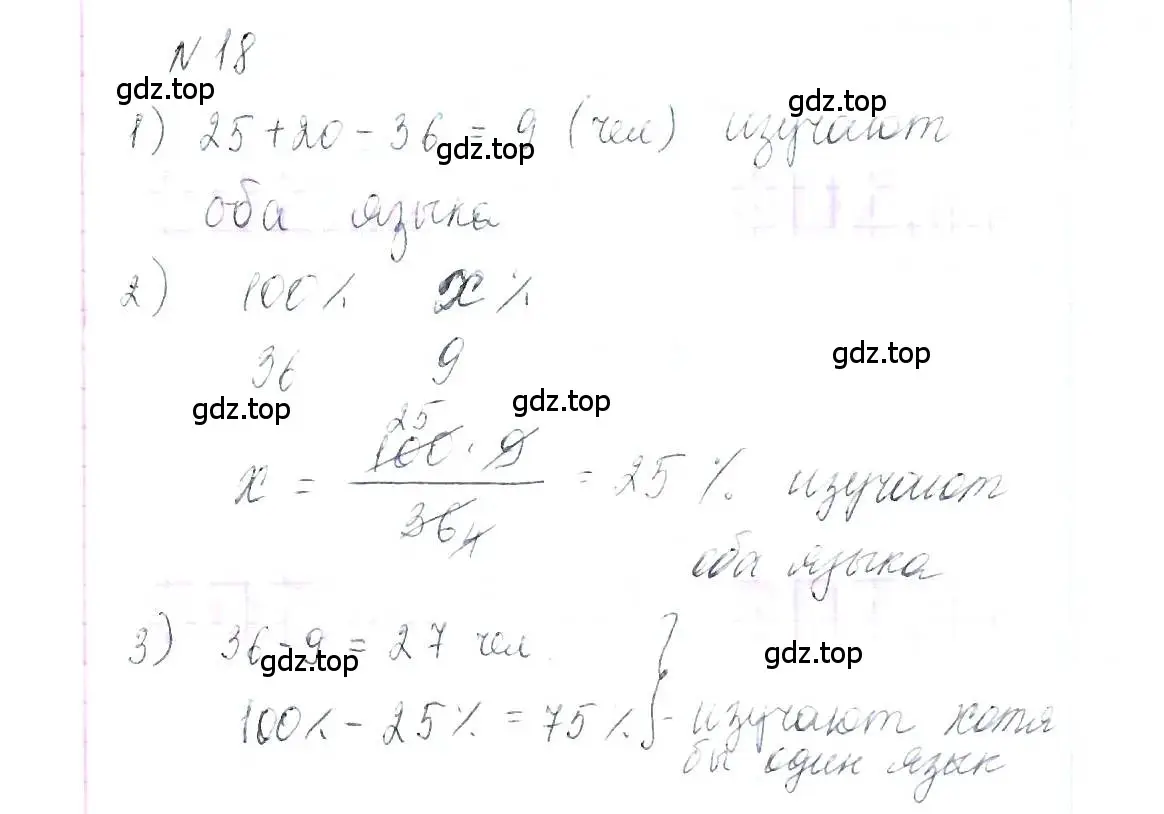 N 18
gdz.top
gdz.top
1) 25 + 20 - 36 = 9 (чел) изучают
gdz.top
оба языка
2) 100% x%
36 9
gdz.top
gdz.top
gdz.top
25
x = 100 · 9 = 25 % изучают
36 4
оба языка
3) 36 - 9 = 27 чел.
gdz.top
gdz.top
100% - 25% = 75% } - изучают хотя
бы один язык